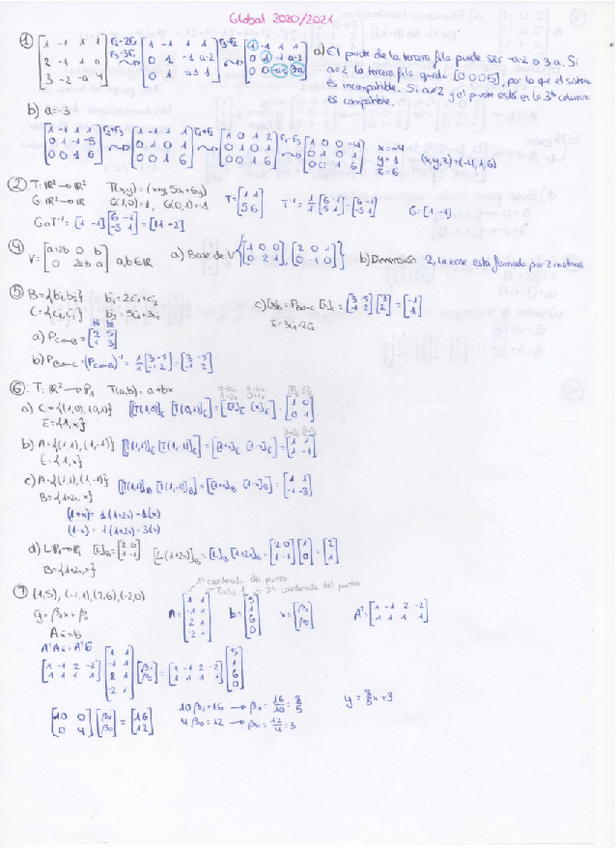 Global 2020/2021
① [1 -1 1 1; 2 -1 1 0; 3 -2 -a 4] F2-2F1 F3-3F1 [1 -1 1 1; 0 1 -1 a-2; 0 1 -a-3 1] F3-F2 [1 -1 1 1; 0 1 -1 a-2; 0 0 -a-2 3-a]
a) El pivote de la tercera fila puede ser -a-2 o 3-a. Si
a=2 la tercera fila queda [0 0 0 5], por lo que el sistema
es incompatible. Si a≠2 y el pivote está en la 3ª columna
es compatible.
b) a=-3
[1 -1 1 1; 0 1 -1 -5; 0 0 1 6] F2+F3 [1 -1 1 1; 0 1 0 1; 0 0 1 6] F1+F2 [1 0 1 2; 0 1 0 1; 0 0 1 6] F1-F3 [1 0 0 -4; 0 1 0 1; 0 0 1 6] x=-4 y=1 z=6 (x,y,z)=(-4,1,6)
② T: ℝ² → ℝ² T(x,y)=(x+y, 5x+6y) T=[1 1; 5 6] T⁻¹=1/1 [6 -1; -5 1]=[6 -1; -5 1] G=[1 -1]
G: ℝ² → ℝ G(1,0)=1, G(0,1)=-1
G∘T⁻¹=[1 -1][6 -1; -5 1]=[11 -2]
④ V=[a+2b 0 b; 0 2a-b a] a,b∈ℝ a) Base de V {[1 0 0; 0 2 1], [2 0 1; 0 -1 0]} b) Dimensión 2, la base está formada por 2 matrices
⑤ B={b1,b2} b1=2c1+c2 c) [x]B=P B←C [x]C=[3 -5; -1 2][3; 2]=[-1; 1]
C={c1,c2} b2=5c1+3c2
a) P C←B=[2 5; 1 3]
b) P B←C=(P C←B)⁻¹=1/1 [3 -5; -1 2]=[3 -5; -1 2]
⑥ T: ℝ² → P1 T(a,b)=a+bx
a) C={(1,0),(0,1)} [[T(1,0)]E [T(0,1)]E]=[[1]E [x]E]=[1 0; 0 1]
E={1,x}
b) A={(1,1),(1,-1)} [[T(1,1)]E [T(1,-1)]E]=[[1+x]E [1-x]E]=[1 1; 1 -1]
E={1,x}
c) A={(1,1),(1,-1)} [[T(1,1)]B [T(1,-1)]B]=[[1+x]B [1-x]B]=[1 1; -1 -3]
B={1+2x,x}
(1+x)=1(1+2x)-1(x)
(1-x)=1(1+2x)-3(x)
d) L:P1→P1 [L]B=[2 0; 1 -1] [L(1+2x)]B=[L]B [1+2x]B=[2 0; 1 -1][1; 0]=[2; 1]
B={1+2x,x}
⑦ (1,5), (-1,1), (2,6), (-2,0)
1ª coordenada del punto
Todo 1 2ª coordenada del punto
y=β1x+β0 A=[1 1; -1 1; 2 1; -2 1] b=[5; 1; 6; 0] x=[β1; β0] Aᵀ=[1 -1 2 -2; 1 1 1 1]
Ax=b
AᵀAx=Aᵀb
[1 -1 2 -2; 1 1 1 1][1 1; -1 1; 2 1; -2 1][β1; β0]=[1 -1 2 -2; 1 1 1 1][5; 1; 6; 0]
[10 0; 0 4][β1; β0]=[16; 12] 10β1=16 → β1=16/10=8/5 y=8/5x+3
4β0=12 → β0=12/4=3